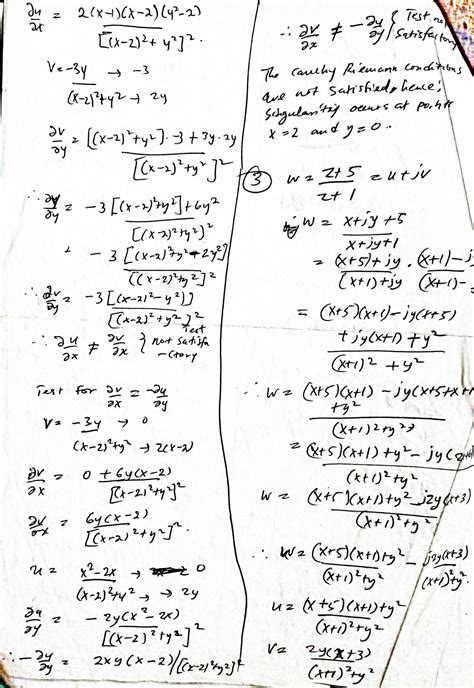 ∂u/∂x = 2(x-1)(x-2)(y²-2) / [(x-2)²+y²]².
V = -3y → -3
(x-2)²+y² → 2y
∂v/∂y = [(x-2)²+y²]·-3 + 3y·2y / [(x-2)²+y²]²
∴ ∂v/∂y = -3[(x-2)²+y²]+6y² / [(x-2)²+y²]²
= -3[(x-2)²+y²-2y²] / [(x-2)²+y²]²
∴ ∂v/∂y = -3[(x-2)²-y²)] / [(x-2)²+y²]²
∴ ∂u/∂x ≠ ∂v/∂x { Test not satisfa-ctory
Test for ∂v/∂x = -∂u/∂y
V = -3y → 0
(x-2)²+y² → 2(x-2)
∂v/∂x = 0 + 6y(x-2) / [(x-2)²+y²]²
∂v/∂x = 6y(x-2) / [(x-2)²+y²]².
u = x²-2x → 0
(x-2)²+y² → 2y
∂u/∂y = -2y(x²-2x) / [(x-2)²+y²]²
∴ -∂u/∂y = 2xy(x-2)/[(x-2)²+y²]²
∴ ∂v/∂x ≠ -∂u/∂y { Test
Satisfactory
The cauchy Riemann conditions
are not satisfied, hence;
Singularity occurs at points
x=2 and y=0..
③ w = z+5 / z+1 = u+jv
w = x+jy+5 / x+jy+1
= (x+5)+jy / (x+1)+jy · (x+1)-j / (x+1)-
= (x+5)(x+1)-jy(x+5)
+jy(x+1)+y² / (x+1)²+y²
∴ w = (x+5)(x+1)-jy(x+5+x+1
+y² / (x+1)²+y²
= (x+5)(x+1)+y²-jy( / (x+1)²+y²
w = (x+5)(x+1)+y²-j2y(x+3) / (x+1)²+y²
∴ w = (x+5)(x+1)+y² / (x+1)²+y² - j2y(x+3) / (x+1)²+y²
u = (x+5)(x+1)+y² / (x+1)²+y²
V = 2y(x+3) / (x+1)²+y²